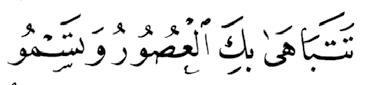 تَتَبَاهَىٰ بِكَ ٱلْعُصُورُ وَتَسْمُو